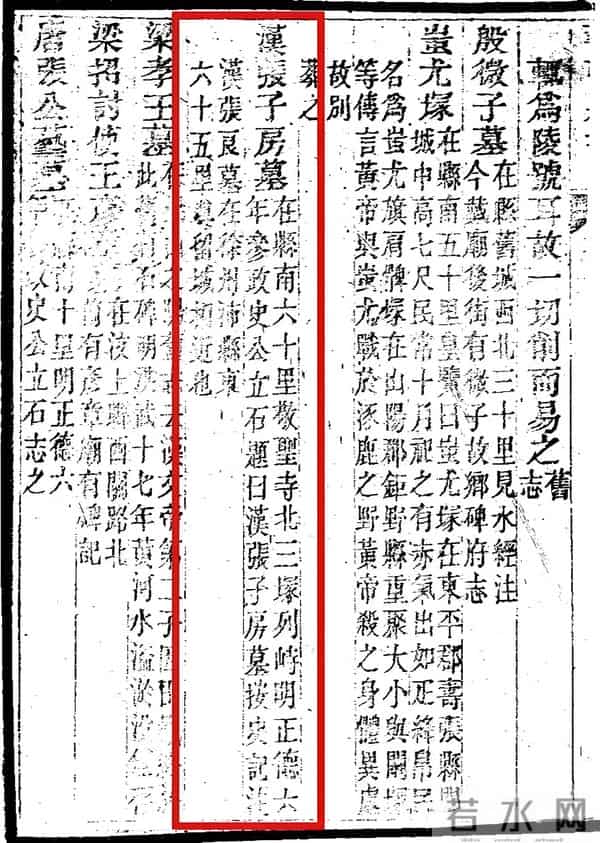 輒爲陵號耳故一切削而易之舊志
殷微子墓
在縣舊城西北三十里見水經注
今廟後街有微子故鄉碑府志
蚩尤塚
在縣南五十里皇覽曰蚩尤塚在東平郡壽張縣闞
城中高七尺民常十月祀之有赤氣出如疋絳帛民
名爲蚩尤旗肩髀塚在山陽郡鉅野縣重聚大小與闞塚
等傳言黃帝與蚩尤戰於涿鹿之野黃帝殺之身體異處
故別
葬之
漢張子房墓
在縣南六十里敬聖寺北三塚列峙明正德六
年參政史公立石題曰漢張子房墓按史記注
漢張良墓在徐州沛縣東
六十五里與留城相近也
梁孝王墓
之陽舊志云漢文帝第二子
此石碑明洪武十七年黃河水溢淤沒
梁招討使王彥
在汶上縣西關路北
前有彥章廟有碑記
唐張公藝墓
南十里明正德六
年參政史公立石志之
若水网